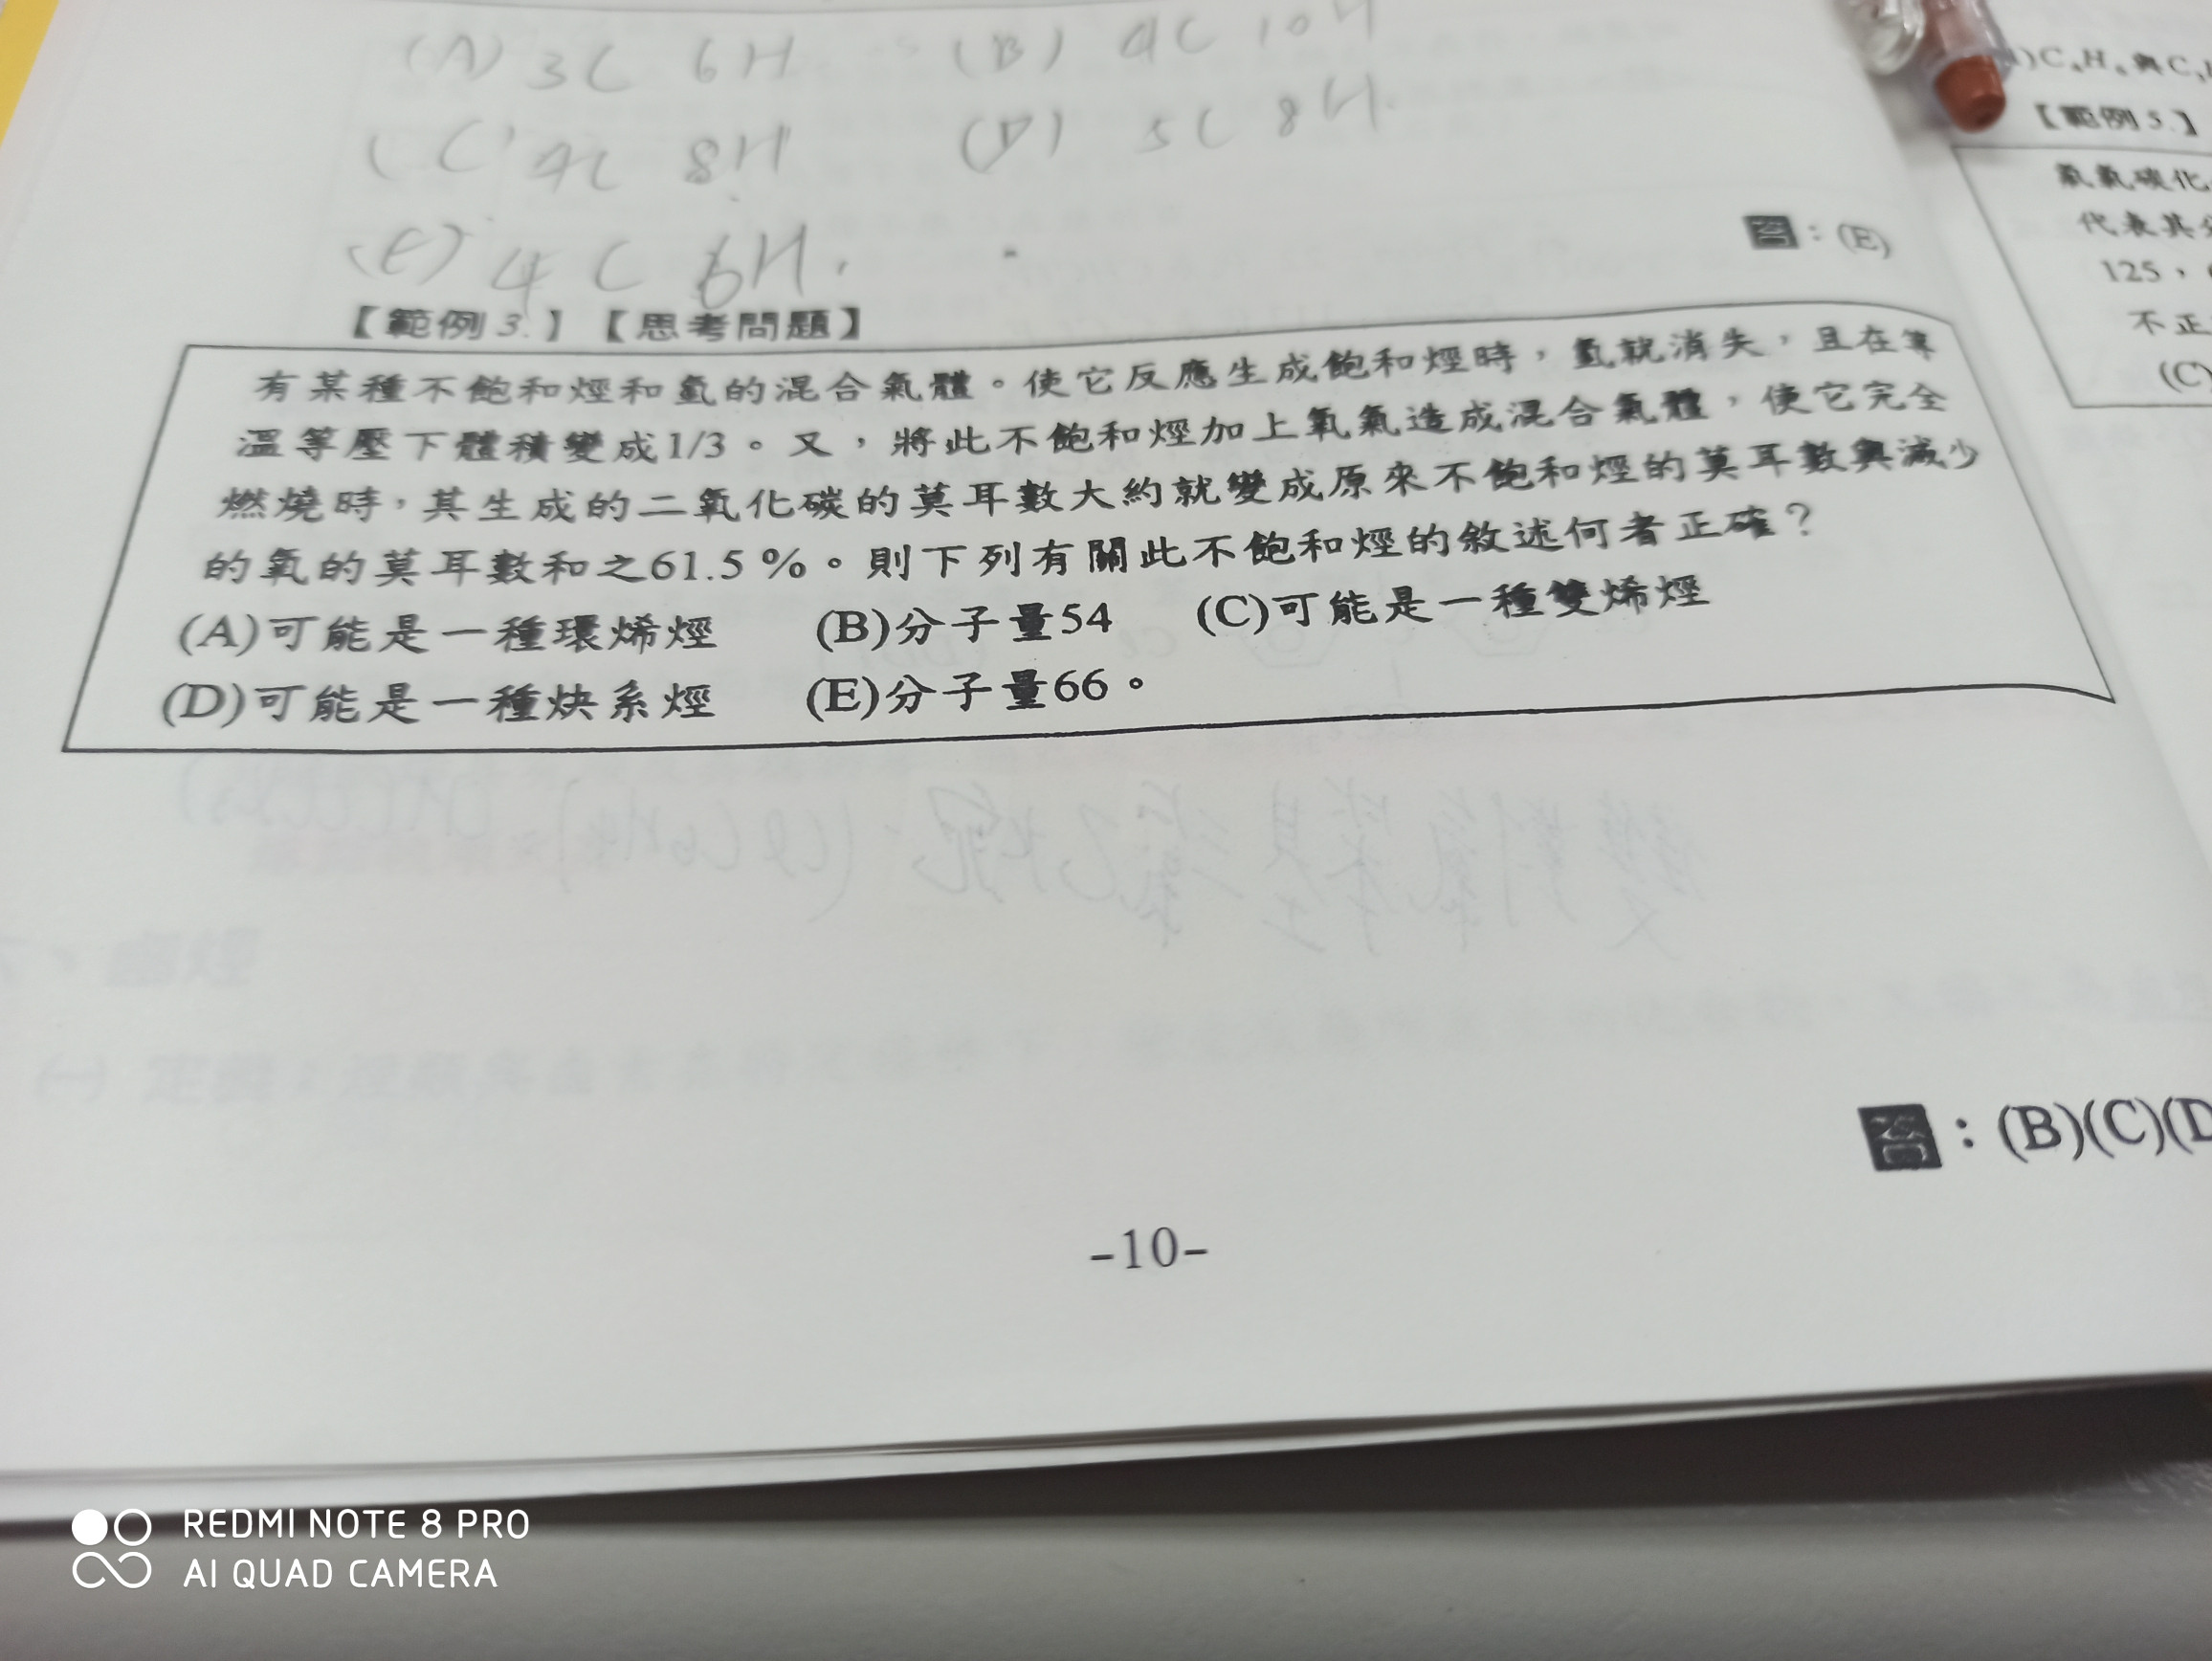 (A) 3C 6H (B) 4C 10H
(C) 4C 8H (D) 5C 8H.
(E) 4C 6H.
答:(E)
【範例3.】【思考問題】
有某種不飽和烴和氫的混合氣體。使它反應生成飽和烴時,氫就消失,且在等
溫等壓下體積變成1/3。又,將此不飽和烴加上氧氣造成混合氣體,使它完全
燃燒時,其生成的二氧化碳的莫耳數大約就變成原來不飽和烴的莫耳數與減少
的氧的莫耳數和之61.5%。則下列有關此不飽和烴的敘述何者正確?
(A)可能是一種環烯烴 (B)分子量54 (C)可能是一種雙烯烴
(D)可能是一種炔系烴 (E)分子量66。
答:(B)(C)(D
-10-
【範例5.】
代表其
125,
不正
(C)
REDMI NOTE 8 PRO
AI QUAD CAMERA